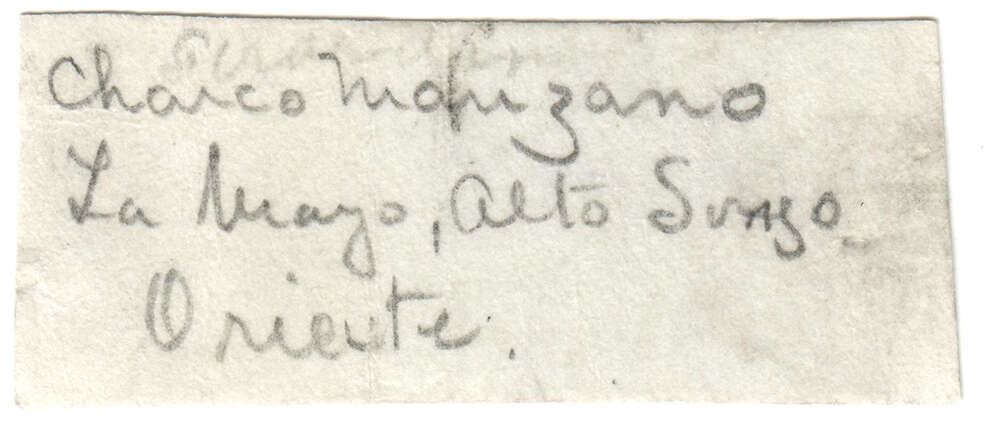 Charco Manzano
La Mayo, Alto Songo
Oriente.